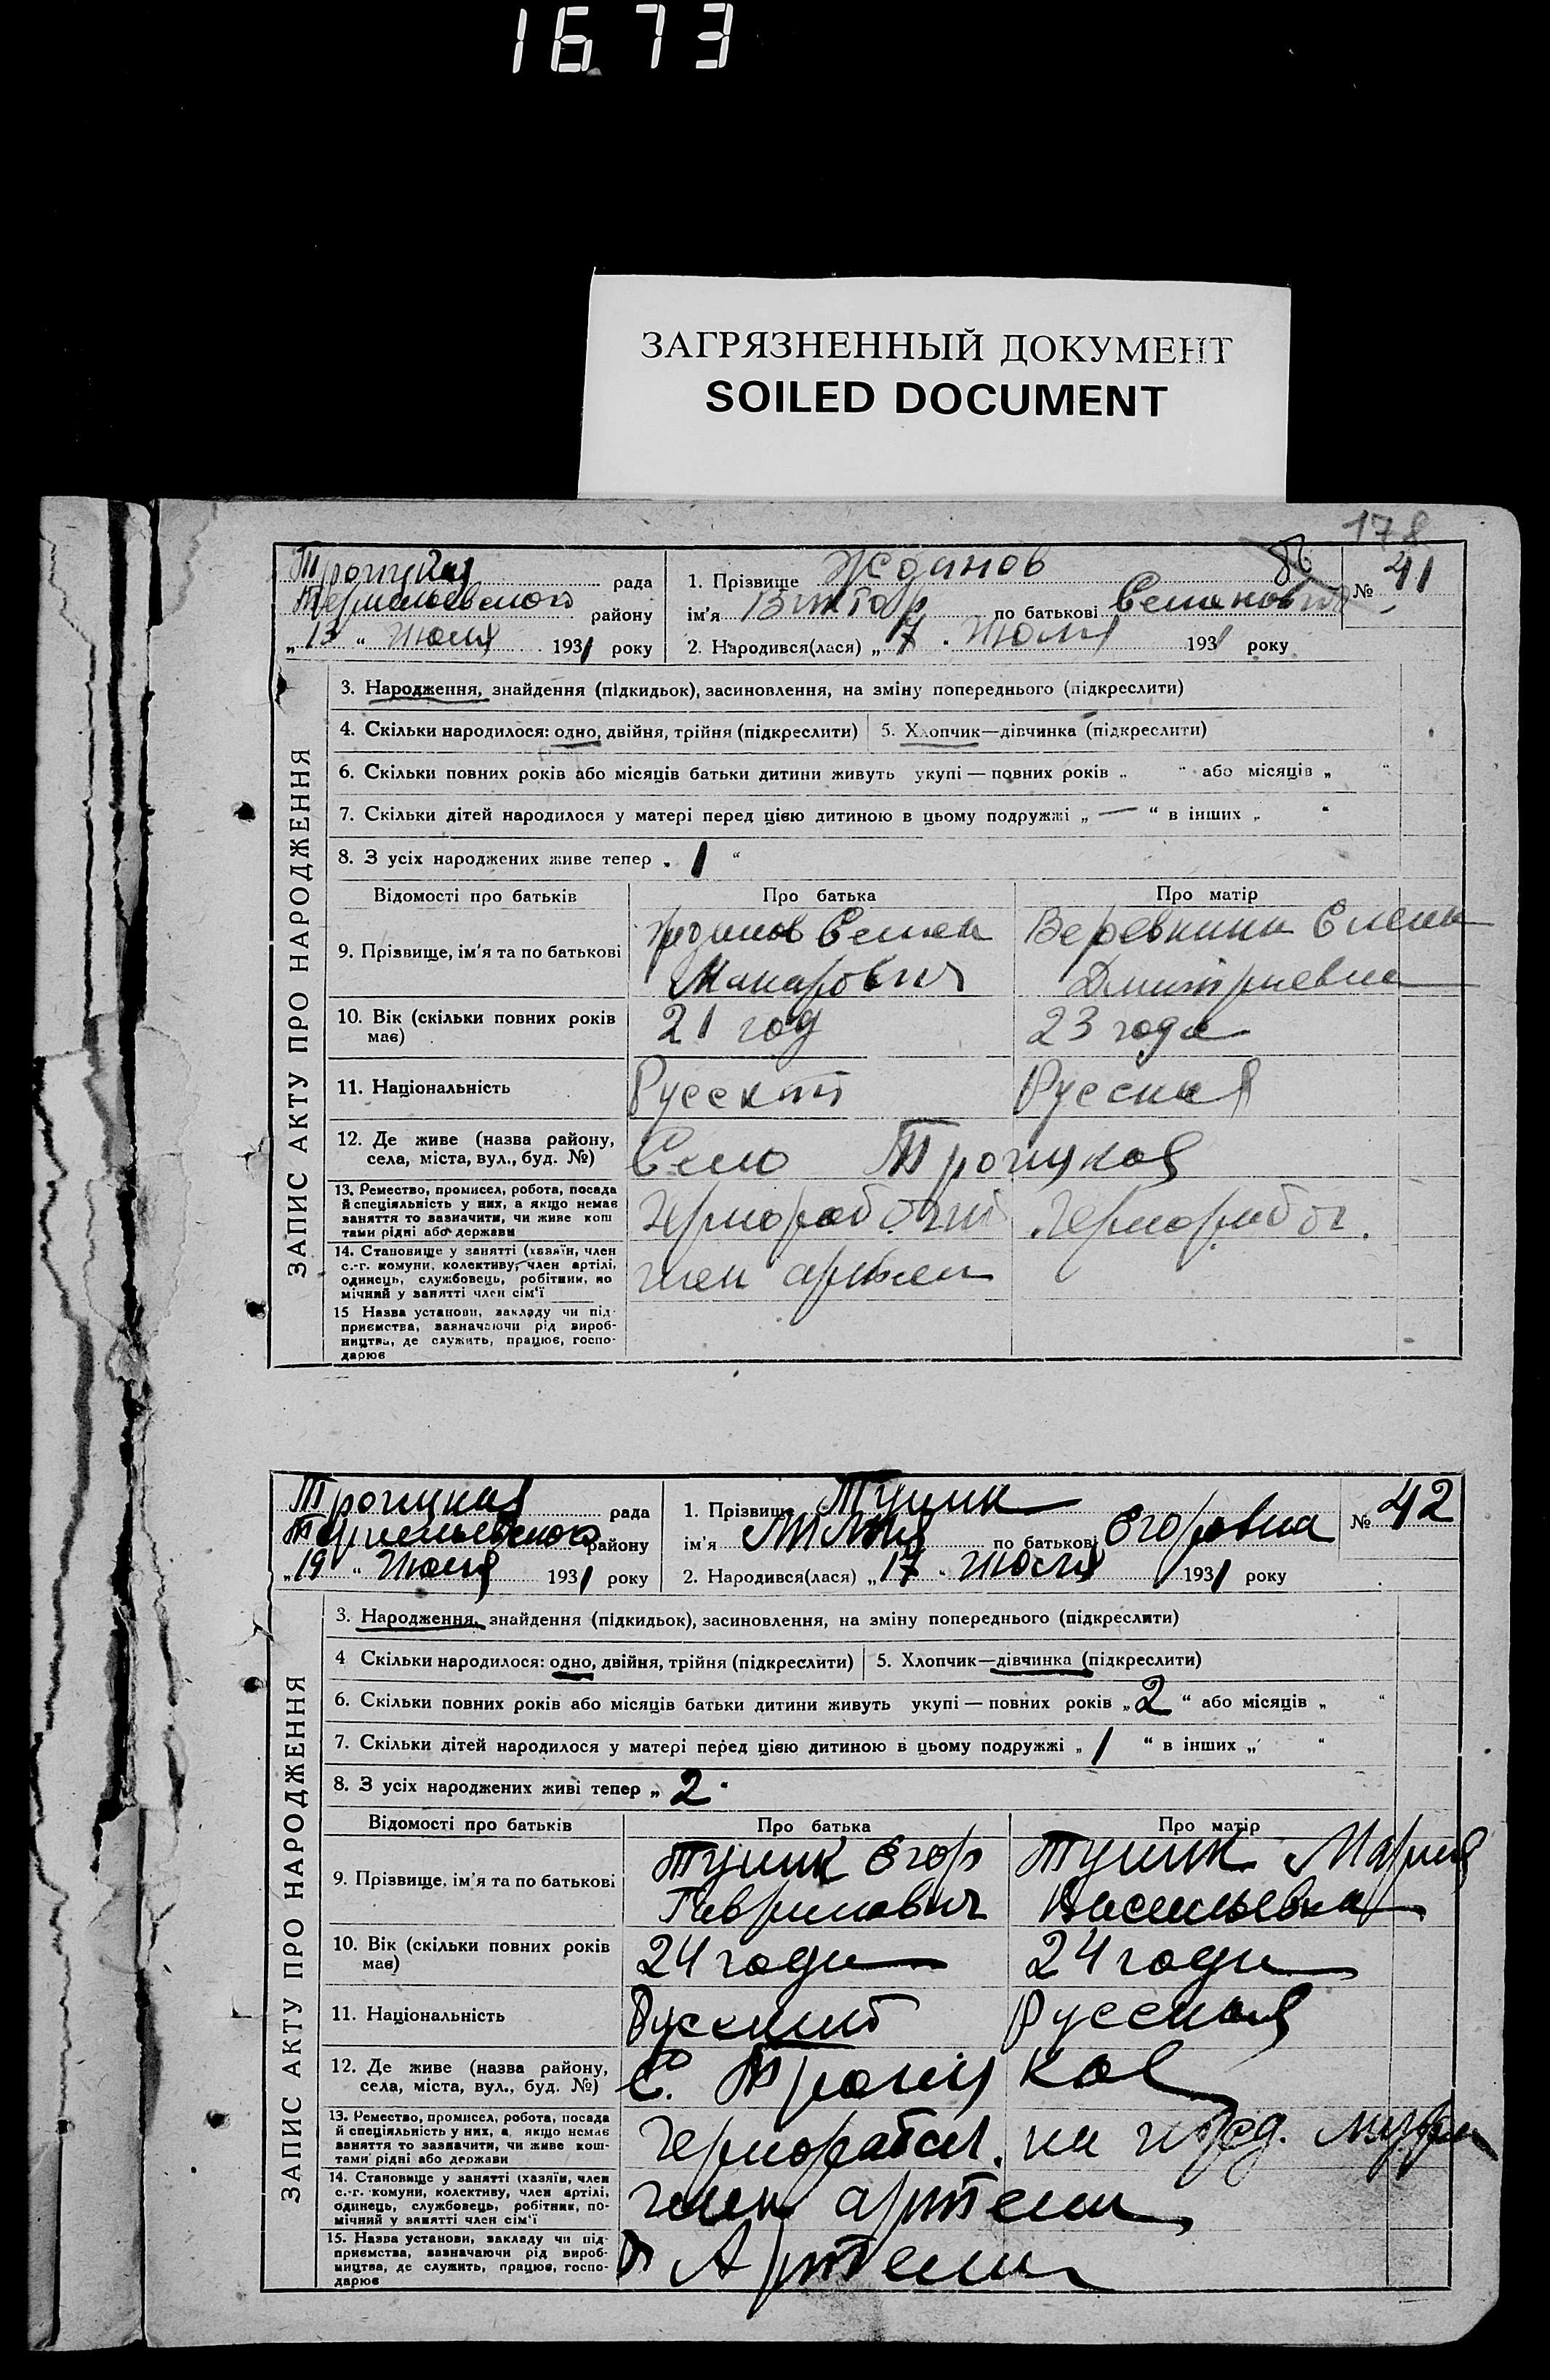 1673
ЗАГРЯЗНЕННЫЙ ДОКУМЕНТ
SOILED DOCUMENT
178
ЗАПИС АКТУ ПРО НАРОДЖЕННЯ
Троицкая рада
району
„13“ Июля 1931 року
1. Прізвище Жданов
№ 41
ім'я Виктор по батькові Семенович
2. Народився(лася) „7“ Июля 1931 року
3. Народження, знайдення (підкидьок), засиновлення, на зміну попереднього (підкреслити)
4. Скільки народилося: одно, двійня, трійня (підкреслити) 5. Хлопчик—дівчинка (підкреслити)
6. Скільки повних років або місяців батьки дитини живуть укупі — повних років „ “ або місяців „ “
7. Скільки дітей народилося у матері перед цією дитиною в цьому подружжі „ — “ в інших „ “
8. З усіх народжених живе тепер „ 1 “
Відомості про батьків Про батька Про матір
9. Прізвище, ім'я та по батькові
Жданов Семен
Макарович
Веревкина Елена
Дмитриевна
10. Вік (скільки повних років
має)
21 год
23 года
11. Національність Русский Русская
12. Де живе (назва району,
села, міста, вул., буд. №)
Село Троицкое
13. Ремество, промисел, робота, посада
й спеціяльність у них, а якщо немає
заняття то зазначити, чи живе кош
тами рідні або держави
Чернорабочий Чернорабоч.
14. Становище у занятті (хазяїн, член
с.-г. комуни, колективу, член артілі,
одинець, службовець, робітник, по
мічний у занятті член сім'ї
член артели
15 Назва установи, закладу чи під-
приємства, зазначаючи рід вироб-
ництва, де служить, працює, госпо-
дарює
ЗАПИС АКТУ ПРО НАРОДЖЕННЯ
Троицкая рада
району
„19“ Июля 1931 року
1. Прізвище Тупик
№ 42
ім'я по батькові Егоровна
2. Народився(лася) „17“ Июля 1931 року
3. Народження, знайдення (підкидьок), засиновлення, на зміну попереднього (підкреслити)
4 Скільки народилося: одно, двійня, трійня (підкреслити) 5. Хлопчик—дівчинка (підкреслити)
6. Скільки повних років або місяців батьки дитини живуть укупі — повних років „ 2 “ або місяців „ “
7. Скільки дітей народилося у матері перед цією дитиною в цьому подружжі „ 1 “ в інших „ “
8. З усіх народжених живі тепер „ 2 “
Відомості про батьків Про батька Про матір
9. Прізвище, ім'я та по батькові
Тупик Егор
Гаврилович
Тупик Мария
Васильевна
10. Вік (скільки повних років
має)
24 года
24 года
11. Національність Русский Русская
12. Де живе (назва району,
села, міста, вул., буд. №)
С. Троицкое
13. Ремество, промисел, робота, посада
й спеціяльність у них, а якщо немає
заняття то зазначити, чи живе кош-
тами рідні або держави
на
14. Становище у занятті (хазяїн, член
с.-г. комуни, колективу, член артілі,
одинець, службовець, робітник, по-
мічний у занятті член сім'ї
член артели
15. Назва установи, закладу чи під-
приємства, зазначаючи рід вироб-
ництва, де служить, працює, госпо-
дарює
В Артели